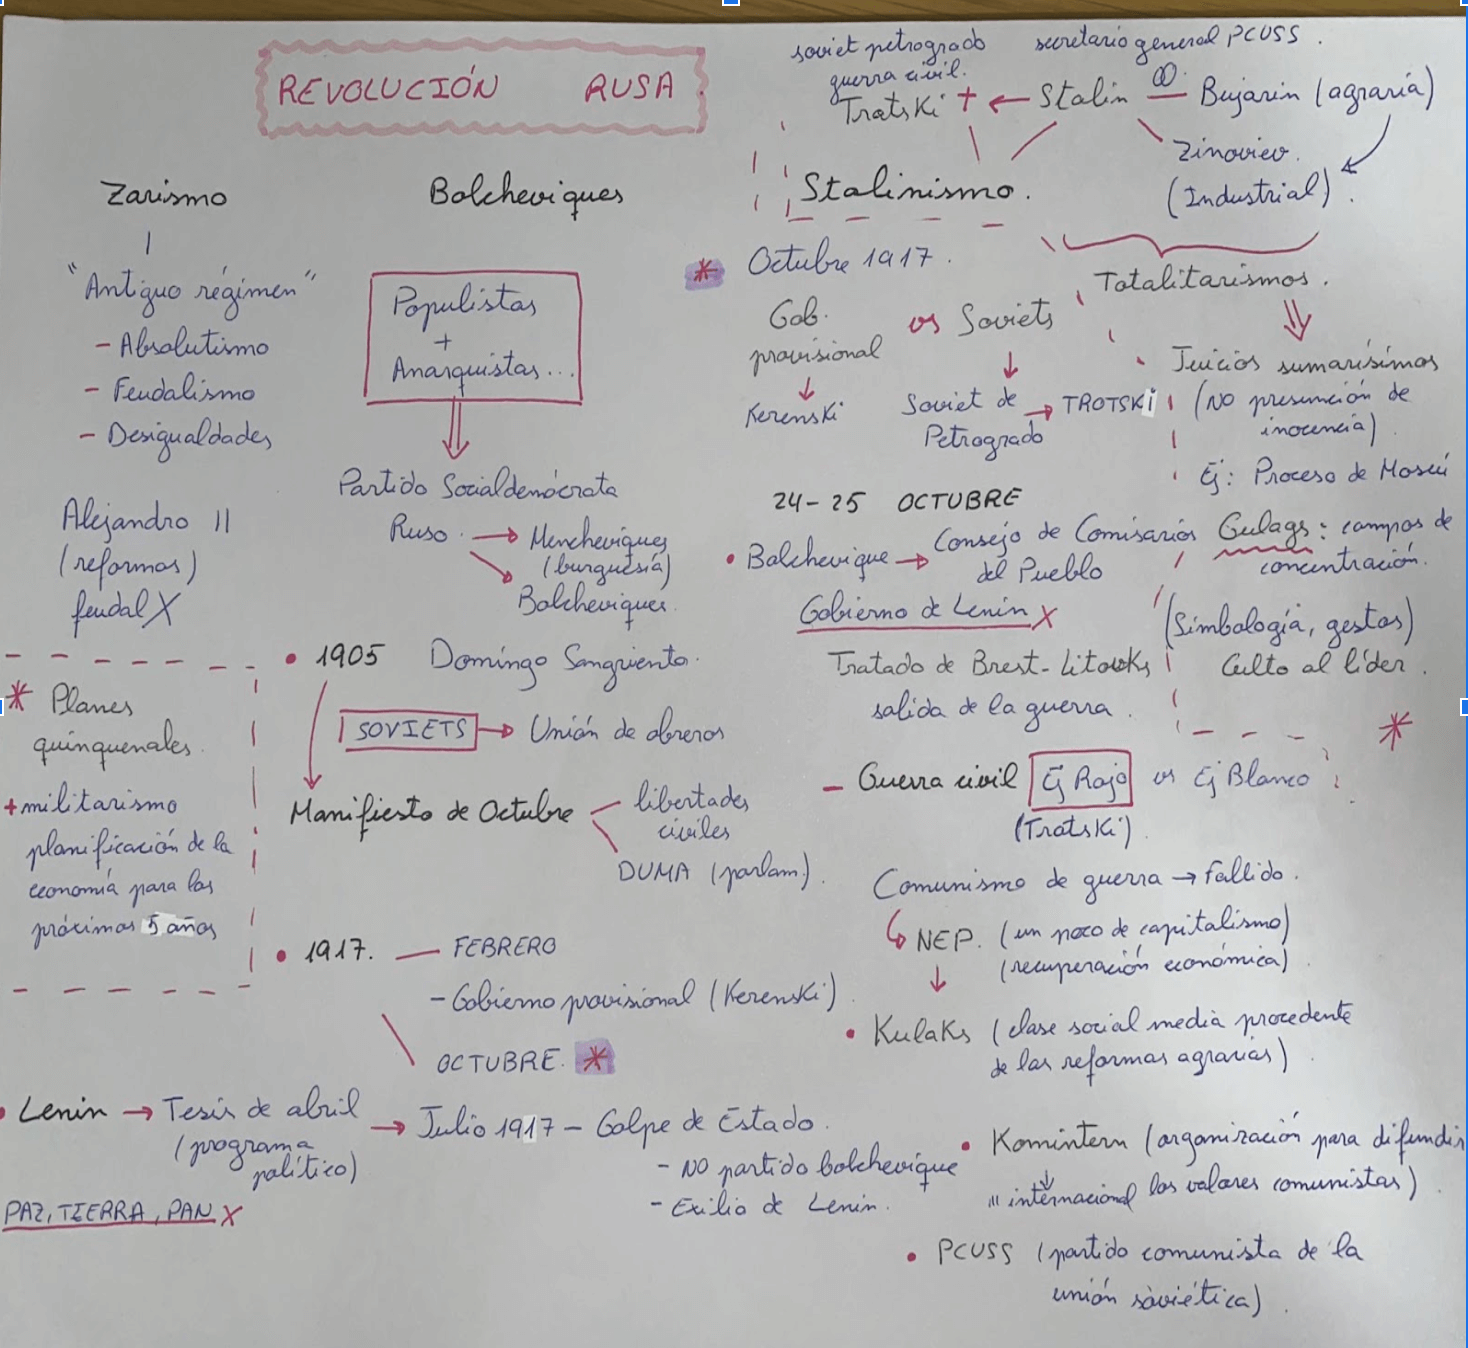 REVOLUCIÓN RUSA
Zarismo
"Antiguo régimen"
- Absolutismo
- Feudalismo
- Desigualdades
Alejandro II
(reformas)
feudal X
* Planes
quinquenales.
+ militarismo
planificación de la
economía para los
próximos 5 años
Bolcheviques
Populistas
+
Anarquistas...
Partido Socialdemócrata
Ruso. → Mencheviques
(burguesía)
Bolcheviques.
• 1905 Domingo Sangriento.
SOVIETS → Unión de obreros
Manifiesto de Octubre
libertades
civiles
DUMA (parlam).
• 1917. — FEBRERO
- Gobierno provisional (Kerenski)
OCTUBRE. *
• Lenin → Tesis de abril
(programa
político)
→ Julio 1917 - Golpe de Estado.
- NO partido bolchevique
- Exilio de Lenin.
PAZ, TIERRA, PAN X
soviet petrogrado
guerra civil.
secretario general PCUSS.
Tratski + ← Stalin — Bujarin (agraria)
Zinoviev.
(Industrial).
Stalinismo.
* Octubre 1917.
Gob.
provisional
vs Soviets
Kerenski
Soviet de
Petrogrado
→ TROTSKi
24-25 OCTUBRE
• Bolchevique → Consejo de Comisarios
del Pueblo
Gobierno de Lenin X
Tratado de Brest-Litovks
salida de la guerra.
- Guerra civil Ej Rojo vs Ej Blanco
(Tratski).
Comunismo de guerra → fallido.
NEP. (un poco de capitalismo)
(recuperación económica)
• Kulaks (clase social media procedente
de las reformas agrarias)
• Komintern (organización para difundir
los valores comunistas)
III internacional
• PCUSS (partido comunista de la
unión soviética).
Totalitarismos.
Juicios sumarísimos
(NO presunción de
inocencia)
Ej: Proceso de Moscú
Gulags: campos de
concentración.
(Simbología, gestos)
Culto al líder.
*